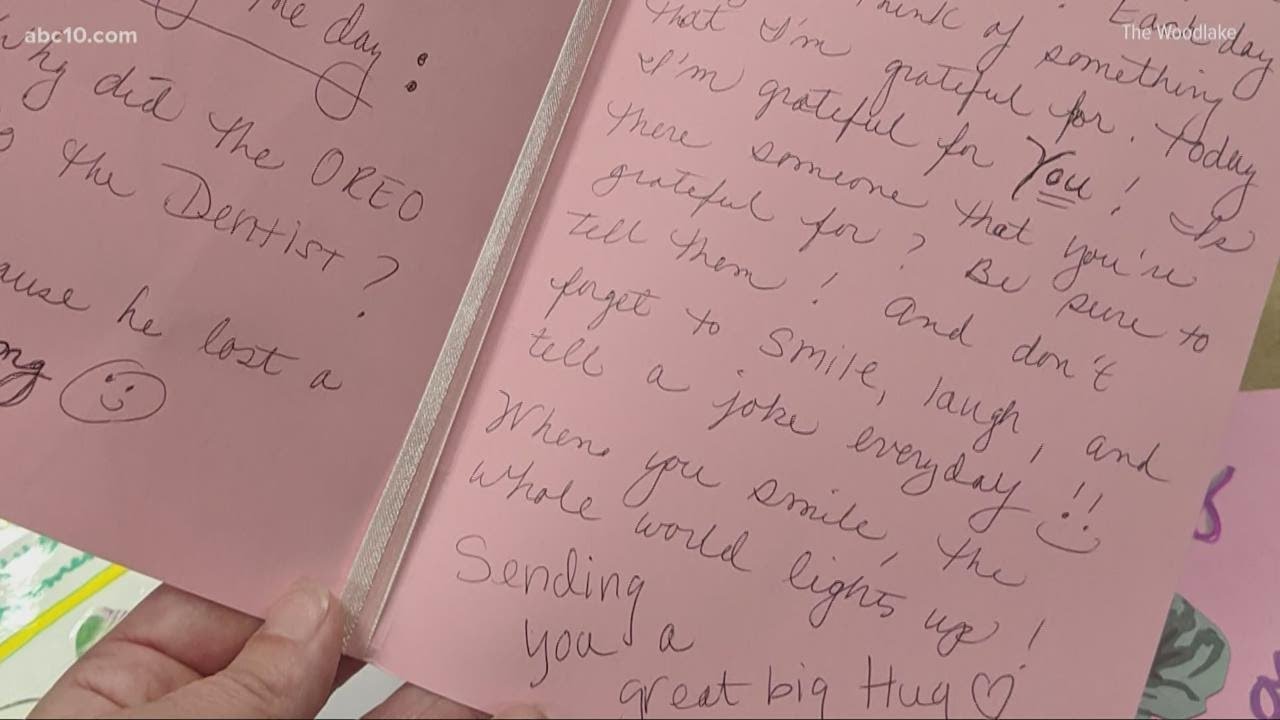 abc10.com
The Woodlake
the day :
Why did the OREO
the Dentist ?
ause he lost a
ng
think of . Each day
that I'm grateful for . Today something
I'm grateful for You ! Is
there someone that you're
grateful for ? Be sure to
tell them ! And don't
forget to smile, laugh, and
tell a joke everyday !!
When you smile, the
whole world lights up !
Sending
you a
great big Hug ♡